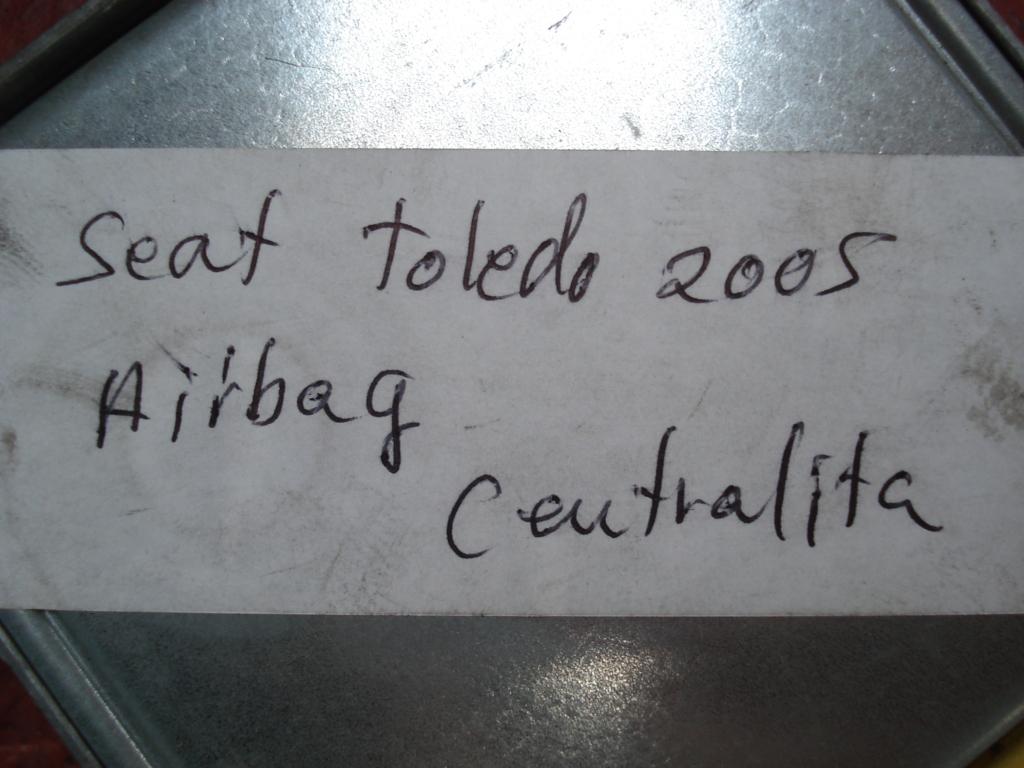 Seat Toledo 2005
Airbag
Centralita